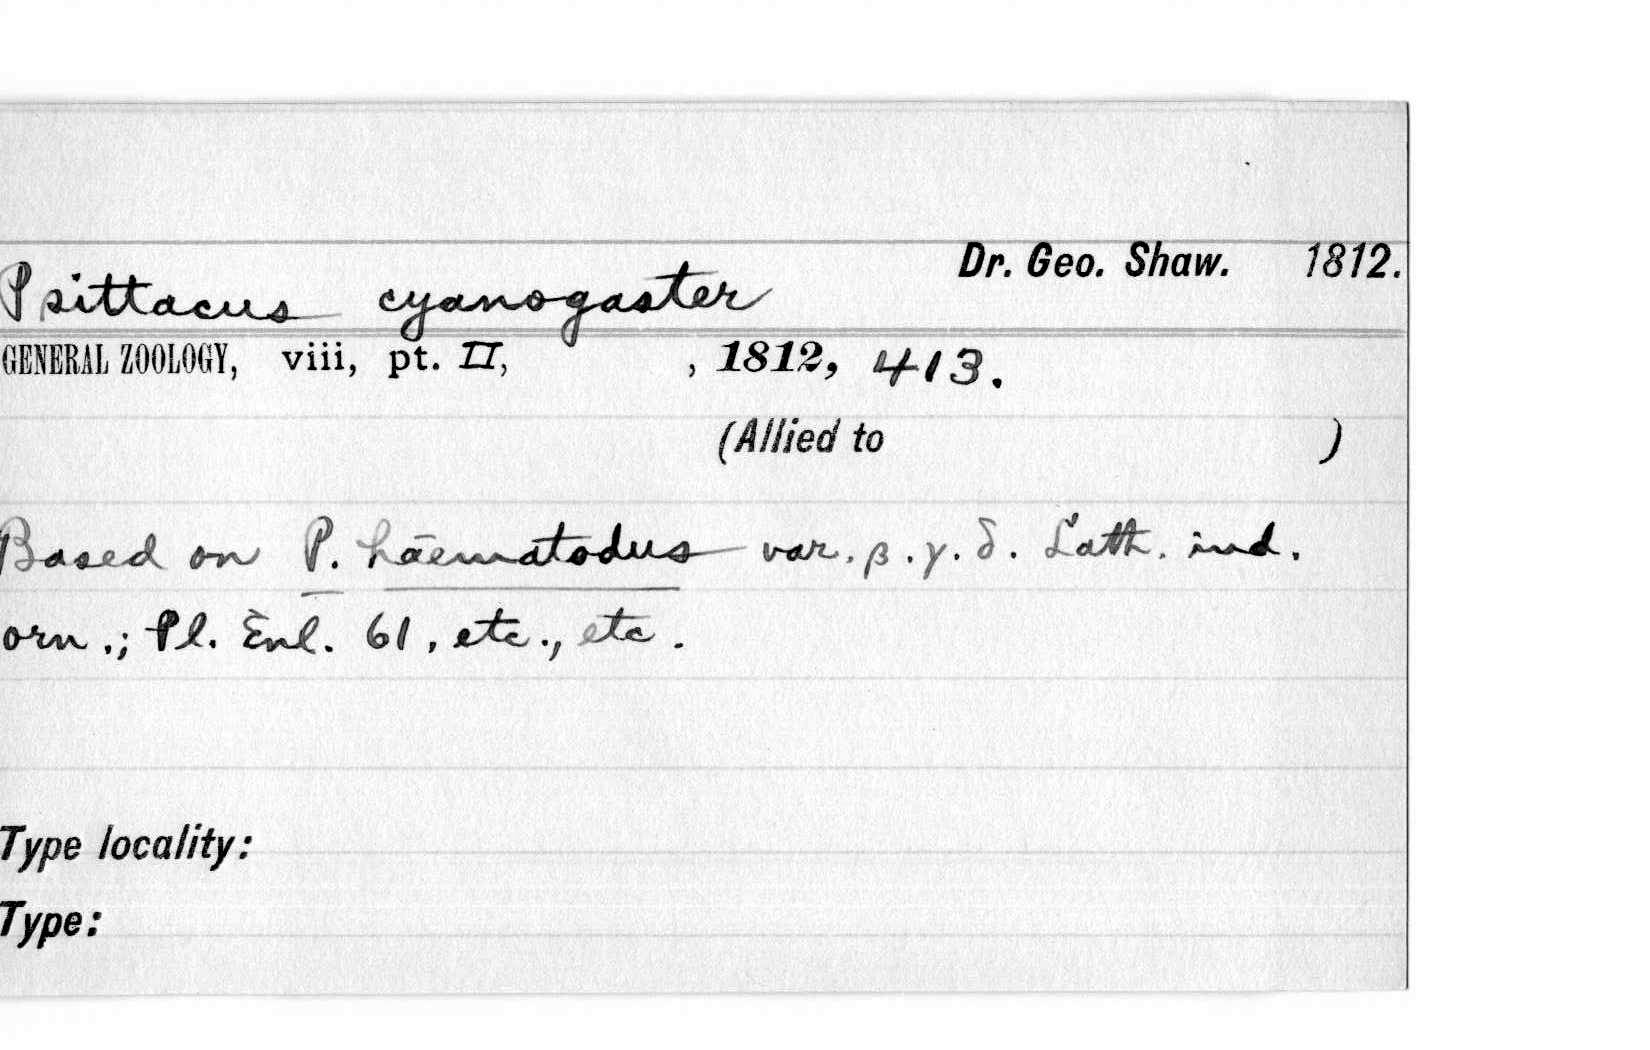 Dr. Geo. Shaw. 1812.
Psittacus cyanogaster
GENERAL ZOOLOGY, viii, pt. II, , 1812, 413.
(Allied to )
Based on P. haematodus var. β. γ. δ. Lath. ind.
orn.; Pl. Enl. 61, etc., etc.
Type locality:
Type: